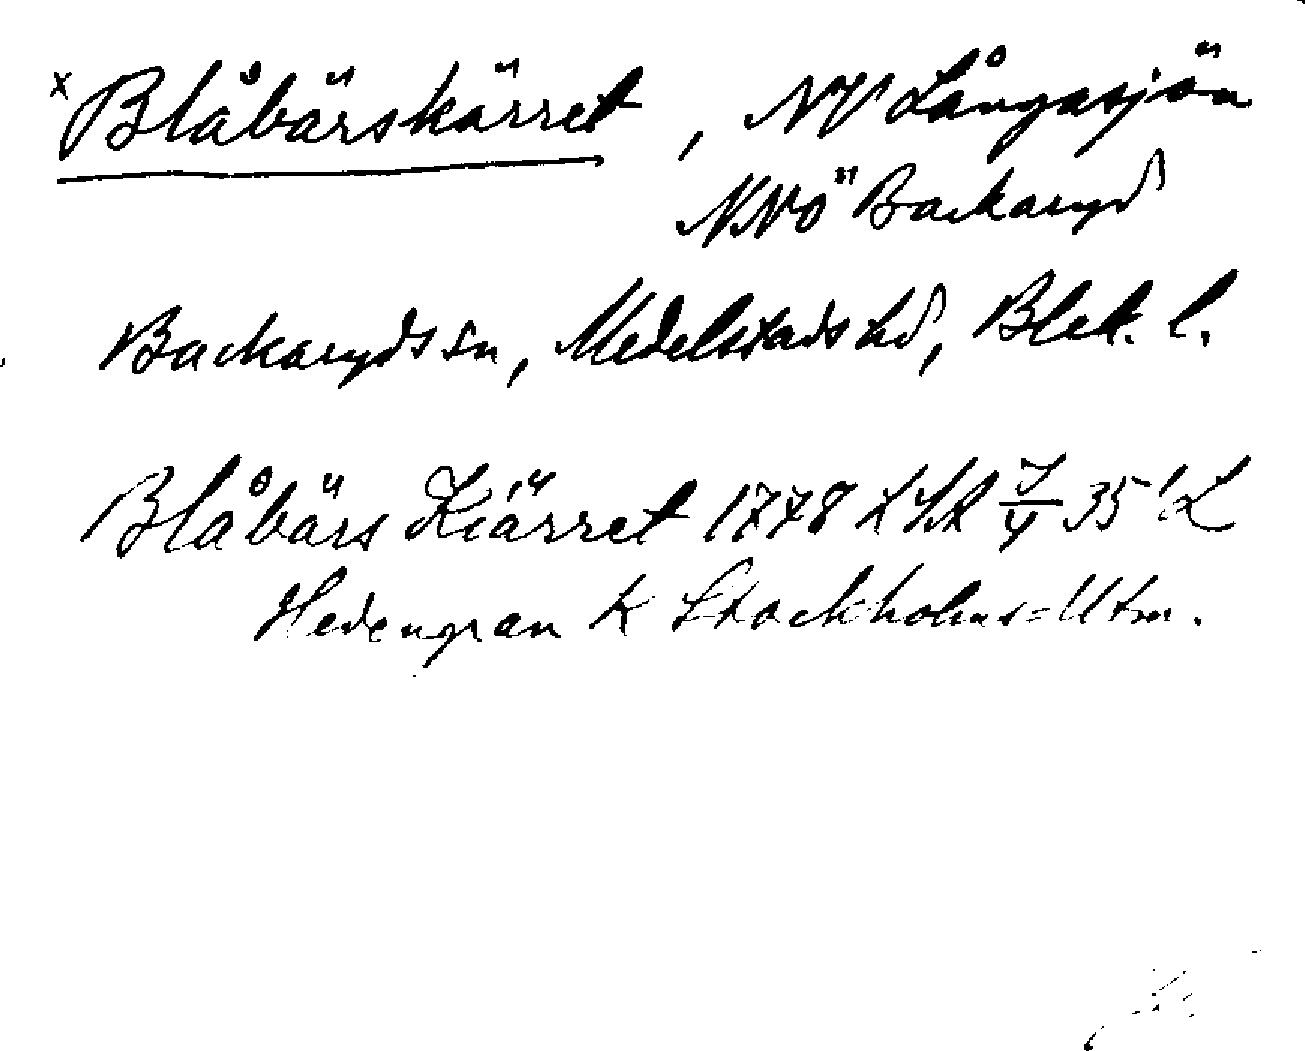 x Blåbärskärret, NV Långasjön
NNÖ Backaryd
Backaryds sn, Medelstads hd, Blek. l.
Blåbärs Kiärret 1778 LSA 35 L
Hedengran K Stockholms=Utm.